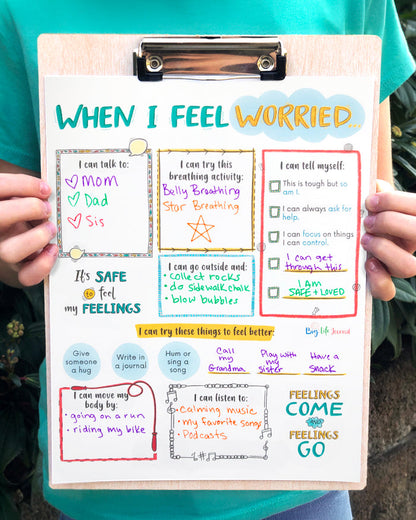 WHEN I FEEL WORRIED...
I can talk to:
Mom
Dad
Sis
I can try this
breathing activity:
Belly Breathing
Star Breathing
I can tell myself:
This is tough but so
am I.
I can always ask for
help.
I can focus on things
I can control.
I can get
through this
I AM
SAFE + LOVED
It's SAFE
to feel
my FEELINGS
I can go outside and:
• collect rocks
• do sidewalk chalk
• blow bubbles
I can try these things to feel better:
Big Life Journal
Give
someone
a hug
Write in
a journal
Hum or
sing a
song
Call
my
Grandma
Play with
my
sister
Have a
snack
I can move my
body by:
• going on a run
• riding my bike
I can listen to:
• calming music
• my favorite song
• Podcasts
FEELINGS
COME
and
FEELINGS
GO